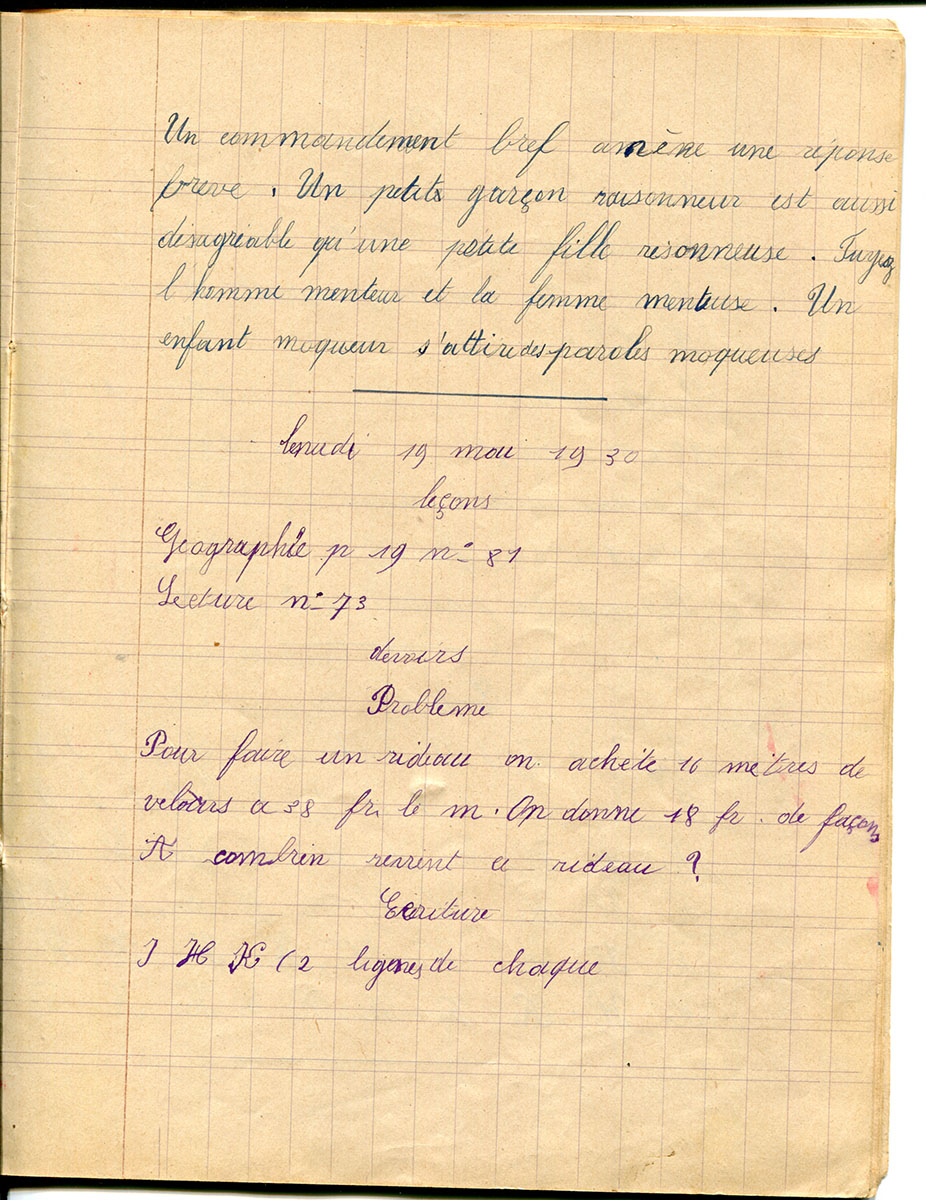 Un commandement bref amène une réponse
breve. Un petit garçon raisonneur est aussi
désagréable qu'une petite fille résonneuse. Fuyez
l homme menteur et la femme menteuse. Un
enfant moqueur s'attire des paroles moqueuses
lundi 19 mai 1930
leçons
Geographie p 19 n° 81
Lecture n° 73
devoirs
Probleme
Pour faire un rideau on achéte 16 métres de
velours a 38 fr. le m. On donne 18 fr. de façon
A combien revient ce rideau ?
Ecriture
J H K (2 lignes de chaque